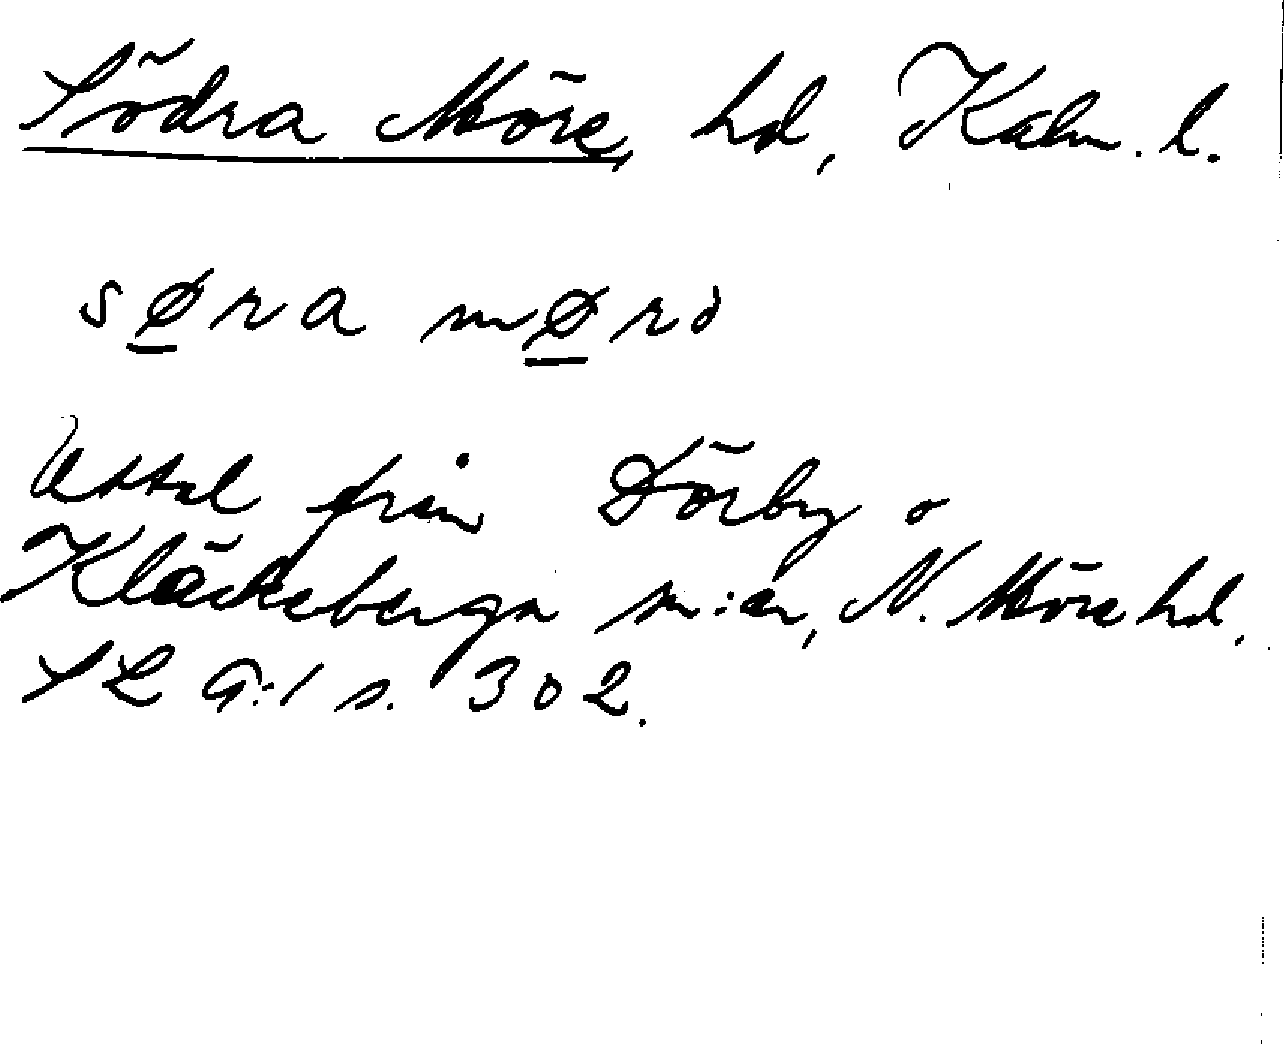 Södra Möre, hd, Kalm. l.
søra mørə
Uttal från Dörby o
Kläckeberga sn:ar, N. Möre hd.
SL 9:1 s. 302.